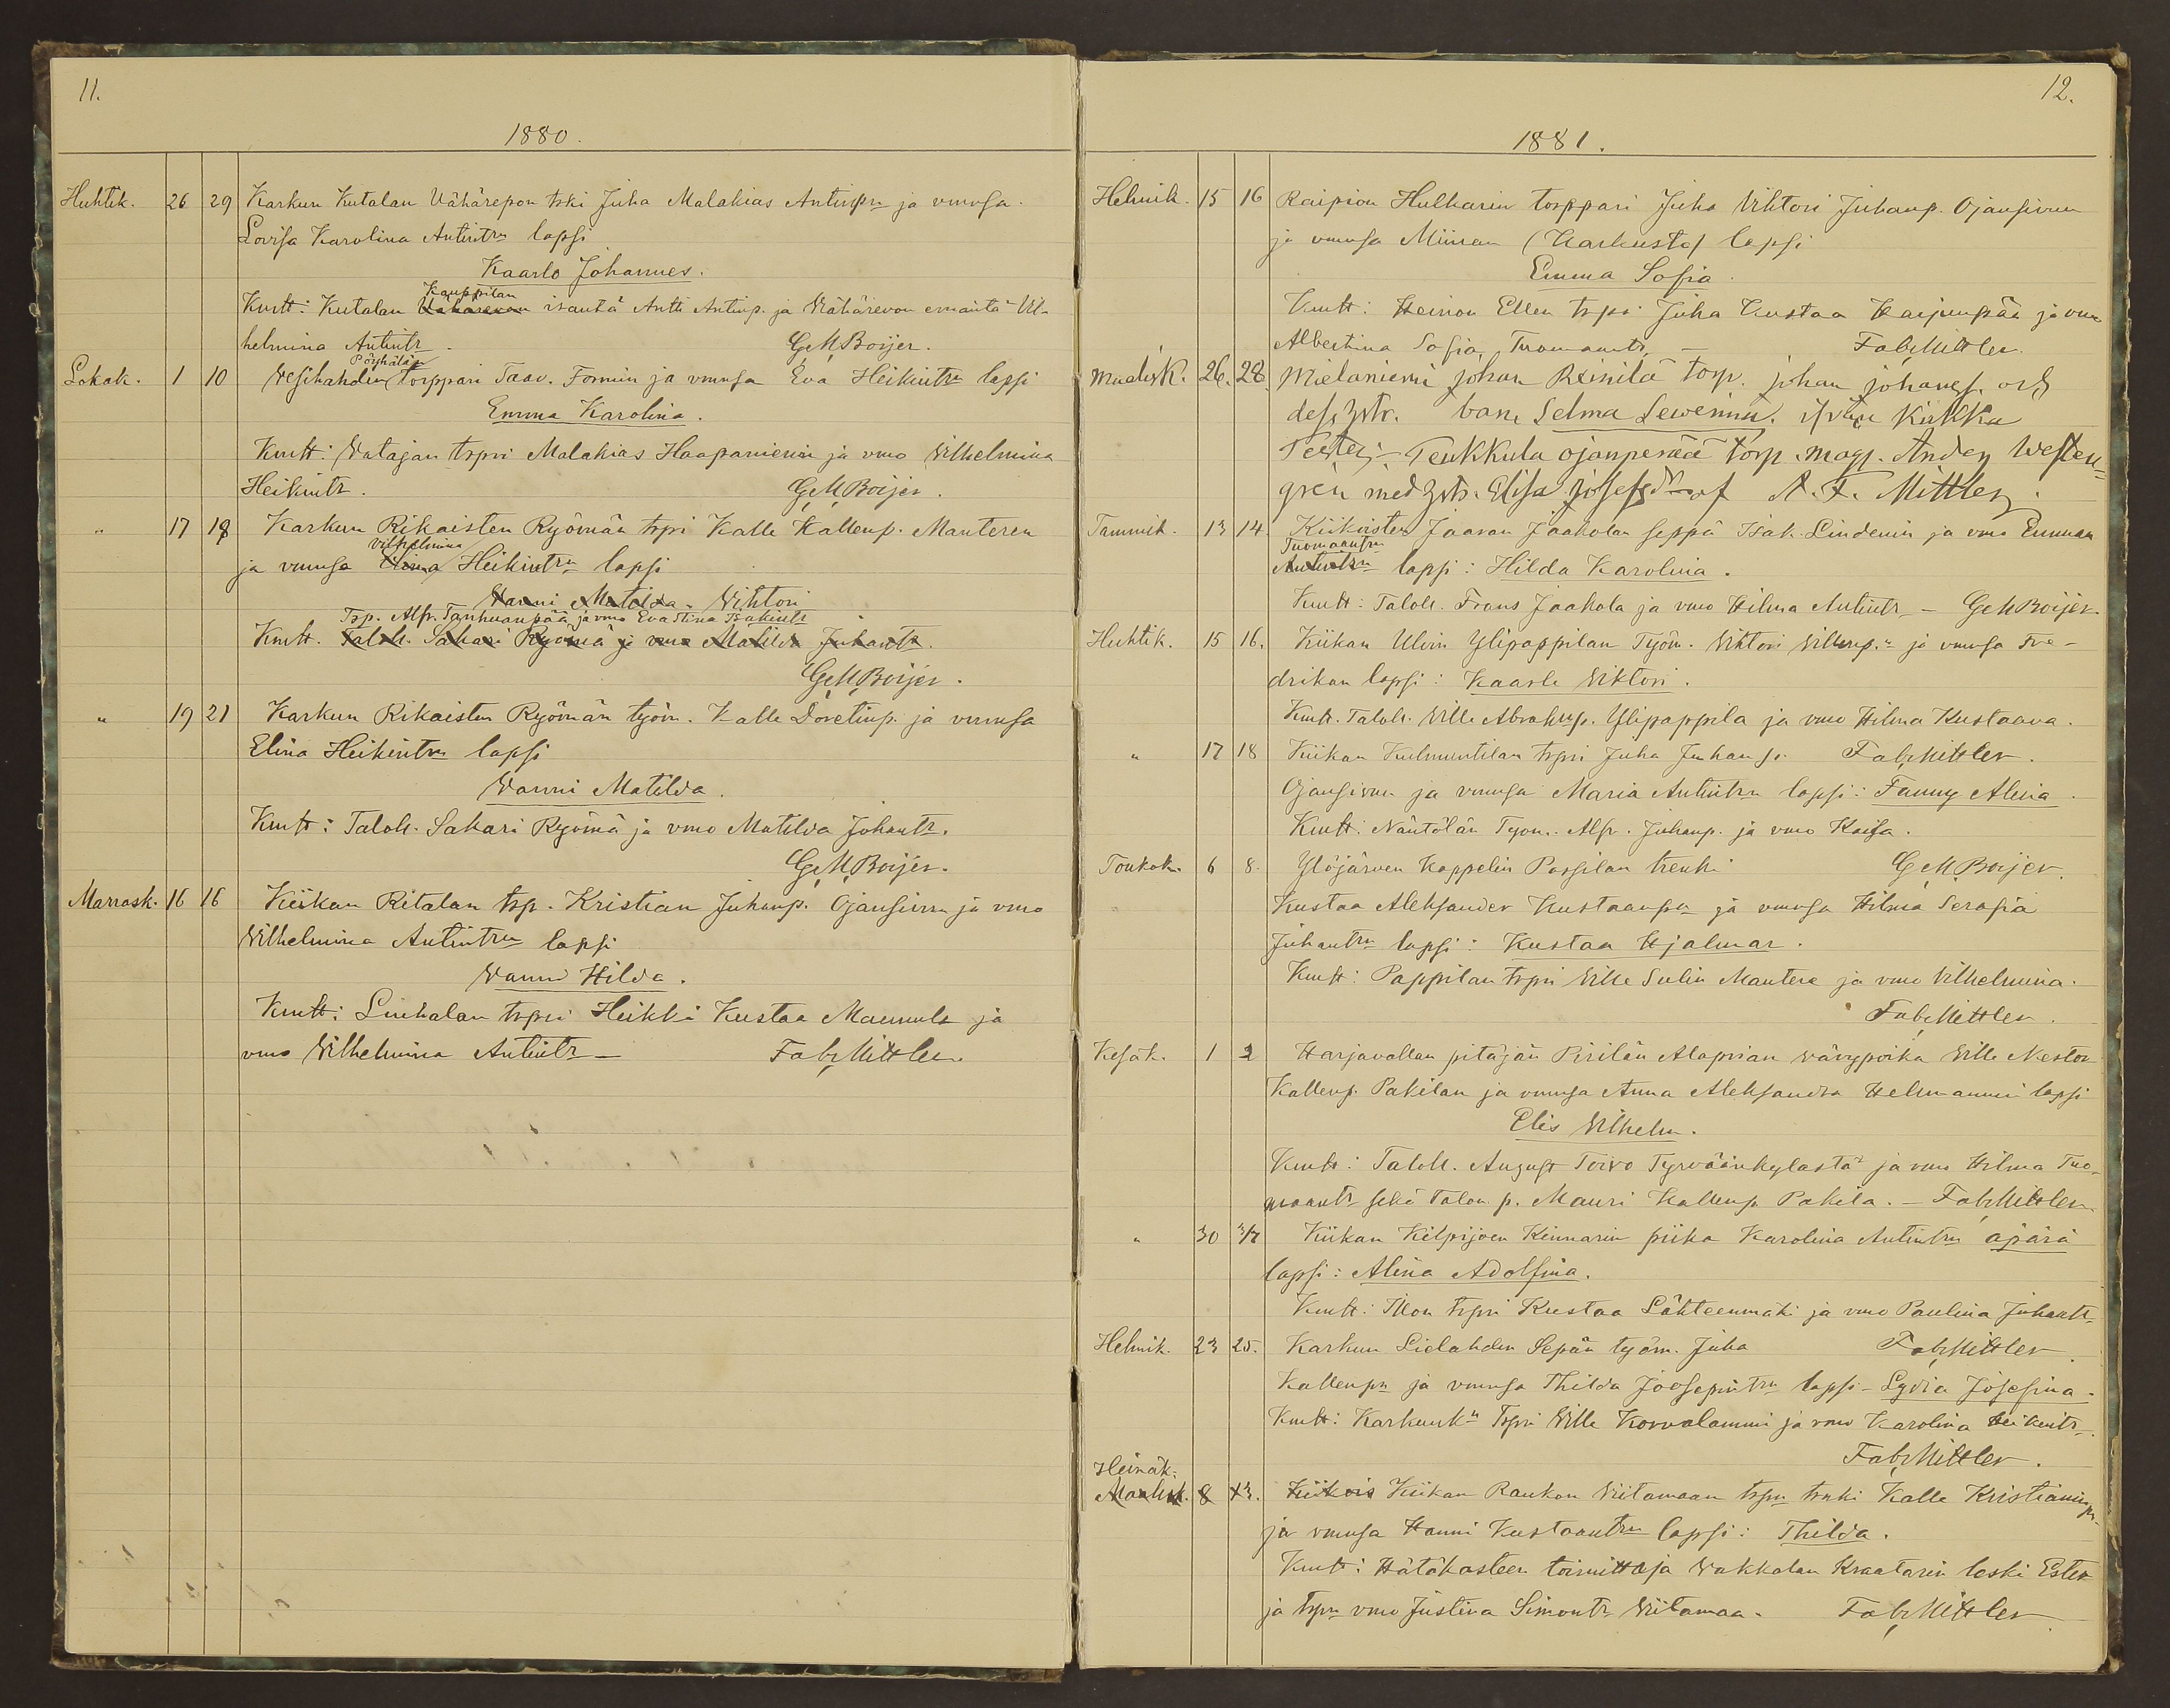 11.
1880.
Huhtik. 26 29 Karkun Kutalan Vähärepon trki Juha Malakias Antinpn ja vmonsa
Lovisa Karolina Antintrn lapsi
Kaarlo Johannes.
Kauppilan
Kmtt: Kutalan Vähärevon isäntä Antti Antinp. ja Wähärevon emäntä Vil-
helmina Antintr. G. M. Boijer.
Pöyhölän
Lokak. 1 10 Vesihahden torppari Taav. Fomin ja vmonsa Eva Heikintrn lapsi
Emma Karolina.
Kmtt: Watajan trpri Malakias Haapaniemi ja vmo Wilhelmina
Heikintr. G. M. Boijer.
" 17 18 Karkun Rikaisten Ryömän trpi Kalle Kallenp. Manteren
vilhelmina
ja vmonsa Elina Heikintrn lapsi
Vanni Matilda. Vihtori
Trp. Alfr. Tanhuanpää ja vmo Eva Stina Isakintr
Kmtt. Taloll. Sakari Ryömä ja vmo Matilda Juhantr.
G. M. Boijer.
" 19 21 Karkun Rikaisten Ryömän työm. Kalle Doretinp. ja vmonsa
Elina Heikintrn lapsi
Wanni Matilda.
Kmtt: Taloll. Sakari Ryömä ja vmo Matilda Johantr.
G. M. Boijer.
Marrask. 16 16 Kiikan Ritalan trp. Kristian Juhanp. Ojansivun ja vmo
Wilhelmina Antintrn lapsi
Wanni Hilda.
Kmtt: Liuhalan trpri Heikki Kustaa Maunula ja
vmo Wilhelmina Antintr – Fab. Mittler.
12.
1881.
Helmik. 15 16 Raipion Hulkarin torppari Juho Vihtori Juhanp. Ojansivun
ja vmonsa Miinan (Karkusta) lapsi
Emma Sofia.
Kmtt: Heinon Ellen trpri Juha Kustaa Karjunpää ja vmo
Albertina Sofia Tuomaantr. – Fab. Mittler.
Maalisk. 26. 28 Mielaniemi johan Reinilä torp. johan johansf. och
dess hstr. barn Selma Lewenina.
Teukkula ojanperää torp. mag. Westen-
gren med hstr. Elisa josefsdr af A. F. Mittler.
Tammik. 13 14. Kiikoisten Jaaran Jaakolan seppä Isak Lindenin ja vmo Emman
Tuomaantrn
Antintrn lapsi: Hilda Karolina.
Kmtt: Taloll. Frans Jaakola ja vmo Hilma Antintr – G. M. Boijer.
Huhtik. 15 16. Kiikan Ulvin Ylipappilan Työm. Vihtori Villenp.n ja vmonsa Fre-
drikan lapsi: Kaarle Viktori.
Kmtt. Taloll. Ville Abrahmp. Ylipappila ja vmo Hilma Kustaava.
" 17 18 Kiikan Kulmuntilan trpri Juha Juhanp. Fab. Mittler.
Ojansivun ja vmonsa Maria Antintrn lapsi: Fanny Alina.
Kmtt: Näntölän Työm. Alfr. Juhanp. ja vmo Kaisa.
Toukok. 6 8. Ylöjärven kappelin Possilan trenki G. M. Boijer.
Kustaa Aleksander Kustaanpn ja vmonsa Hilma Serafia
Juhantrn lapsi: Kustaa Hjalmar.
Kmtt: Pappilan trpri Ville Sulin Mantere ja vmo Vilhelmina.
Fab. Mittler.
Kesäk. 1 2 Harjavallan pitäjän Pirilän Alaprian vävypoika Ville Nestor
Kallenp. Pakilan ja vmonsa Anna Aleksandra Helmannin lapsi
Elis Vilhelm.
Kmtt: Taloll. August Toivo Tyrväänkylästä ja vmo Hilma Tuo-
maantr sekä talon p. Mauri Kallenp. Pakila. – Fab. Mittler.
" 30 3/7 Kiikan Kilpijoen Kinnarin piika Karolina Antintrn äpärä
lapsi: Alina Adolfina.
Kmtt: Illon trpri Kustaa Lähteenmäki ja vmo Paulina Juhantr.
Helmik. 23 25. Karkun Lielahden Sepän työm. Juha Fab. Mittler.
Kallenpn ja vmonsa Thilda Joosepintrn lapsi – Lydia Josefina.
Kmtt: Karkunkn Trpri Ville Korvalammi ja vmo Karolina Heikintr.
Fab. Mittler.
Heinäk.
Maalisk. 8 13. Kiikois Kiikan Raukon Viitamaan trpn trnki Kalle Kristianinpn.
ja vmonsa Hanni Kustaantrn lapsi: Thilda.
Kmtt: Hätäkasteen toimittaja Vakkalan Kraatarin leski Ester
ja trpn vmo Justina Simontr Viitamaa. Fab. Mittler